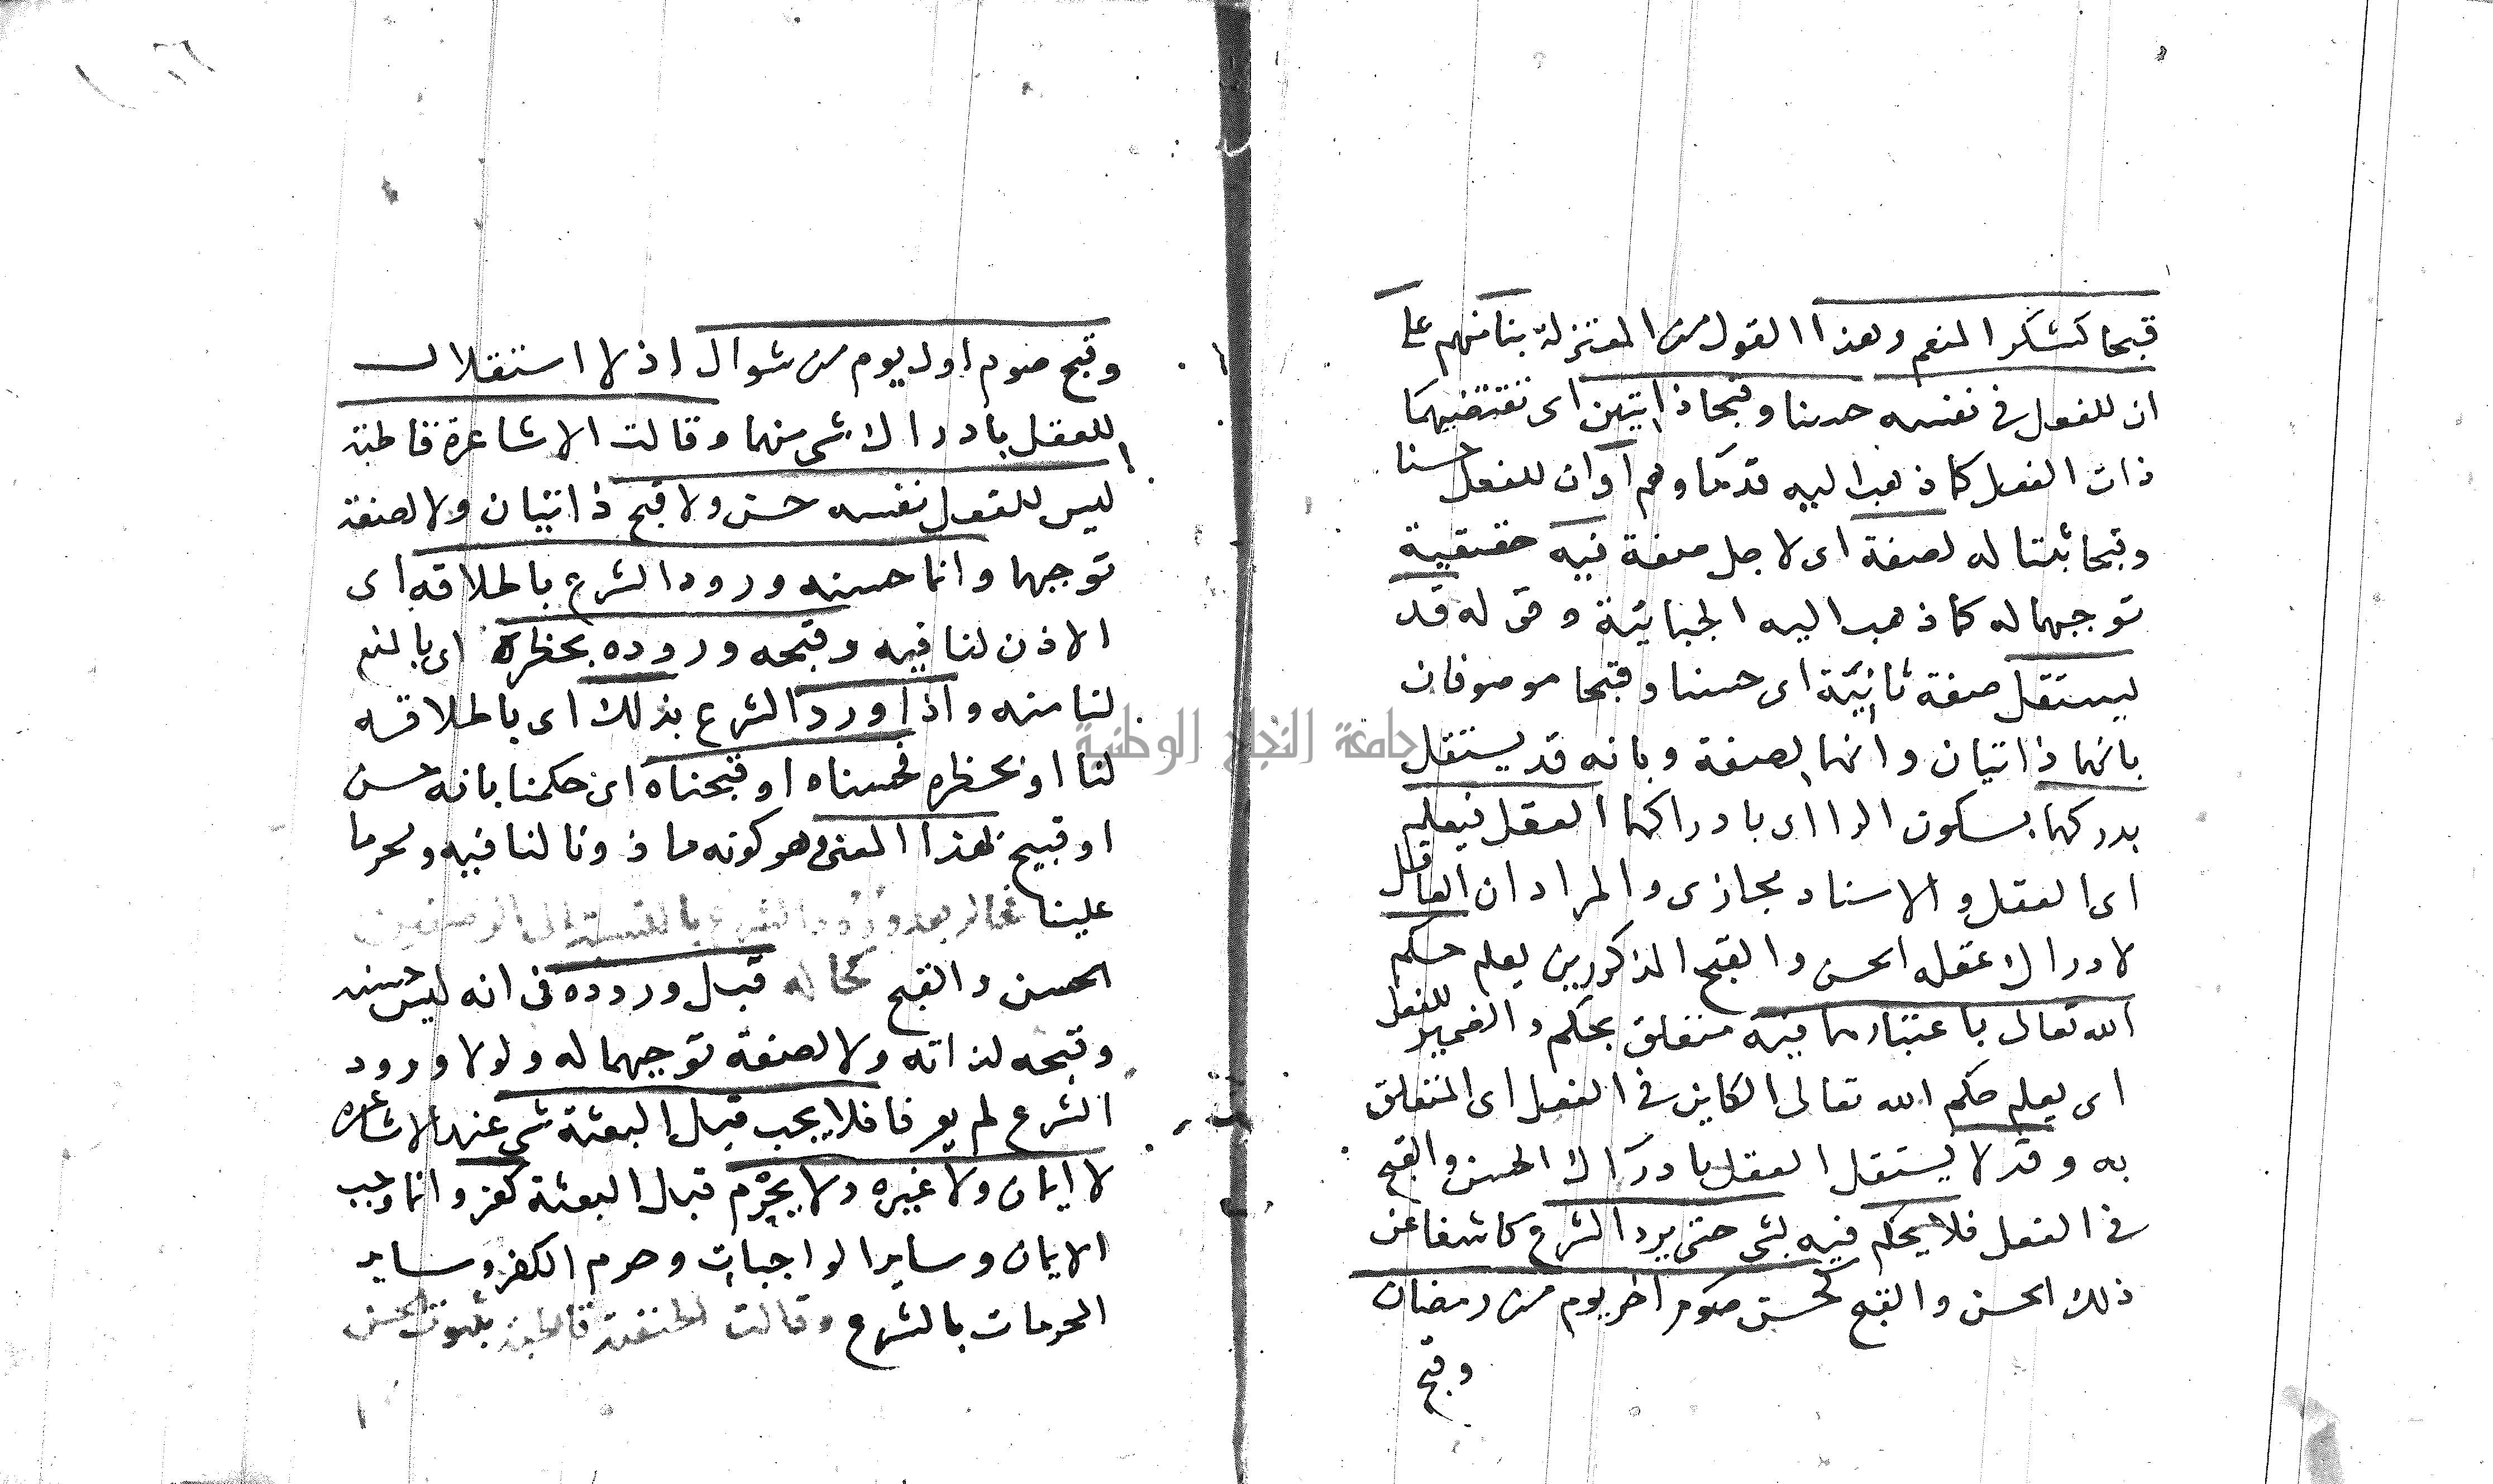 قبحا كشكر المنعم وهذا القول من المعتزلة بنا منهم على
ان للفعل في نفسه حسنا وقبحا ذاتيين اى تقتضيهما
ذات الفعل كما ذهب اليه قدماوهم او ان للفعل حسنا
وقبحا ثبتا له لصفة اى لاجل صفة فيه حقيقية
توجبهما له كما ذهب اليه الجبائية وقوله قد
يستقل صفة ثانية اى حسنا وقبحا موصوفان
بانهما ذاتيان وانهما لصفة وبانه قد يستقل
بدركهما بسكون الرا اى بادراكهما العقل فيعلم
اى العقل والاسناد مجازى والمراد ان العاقل
لادراك عقله الحسن والقبح المذكورين يعلم حكم
الله تعالى باعتبارهما فيه متعلق بحكم والضمير للفعل
اى يعلم حكم الله تعالى الكاين في الفعل اى المتعلق
به وقد لا يستقل العقل بادراك الحسن والقبح
في الفعل فلا يحكم فيه بشى حتى يرد الشرع كاشفا عن
ذلك الحسن والقبح كحسن صوم اخر يوم من رمضان
وقبح
وقبح صوم اول يوم من شوال اذ لا استقلال
للعقل بادراك شى منهما وقالت الاشاعرة قاطبة
ليس للفعل نفسه حسن ولا قبح ذاتيان ولا لصفة
توجبهما وانما حسنه ورود الشرع باطلاقه اى
الاذن لنا فيه وقبحه وروده بحظره اى بالمنع
لنا منه واذا ورد الشرع بذلك اى باطلاقه
لنا او بحظره فحسناه او قبحناه اى حكمنا بانه حسن
او قبيح لهذا المعنى وهو كونه ماذونا لنا فيه ومحرما
علينا فحاله بعد ورود الشرع بالنسبة الى الوصفين
الحسن والقبح كحاله قبل وروده في انه ليس حسنه
وقبحه لذاته ولا لصفة توجبهما له ولولا ورود
الشرع لم يعرفا فلا يجب قبل البعثة شى عند الاشاعره
لا ايمان ولا غيره ولا يحرم قبل البعثة كفر وانما وجب
الايمان وساير الواجبات وحرم الكفر وساير
المحرمات بالشرع وقالت الحنفية قاطبة بثبوت الحسن
جامعة النجاح الوطنية